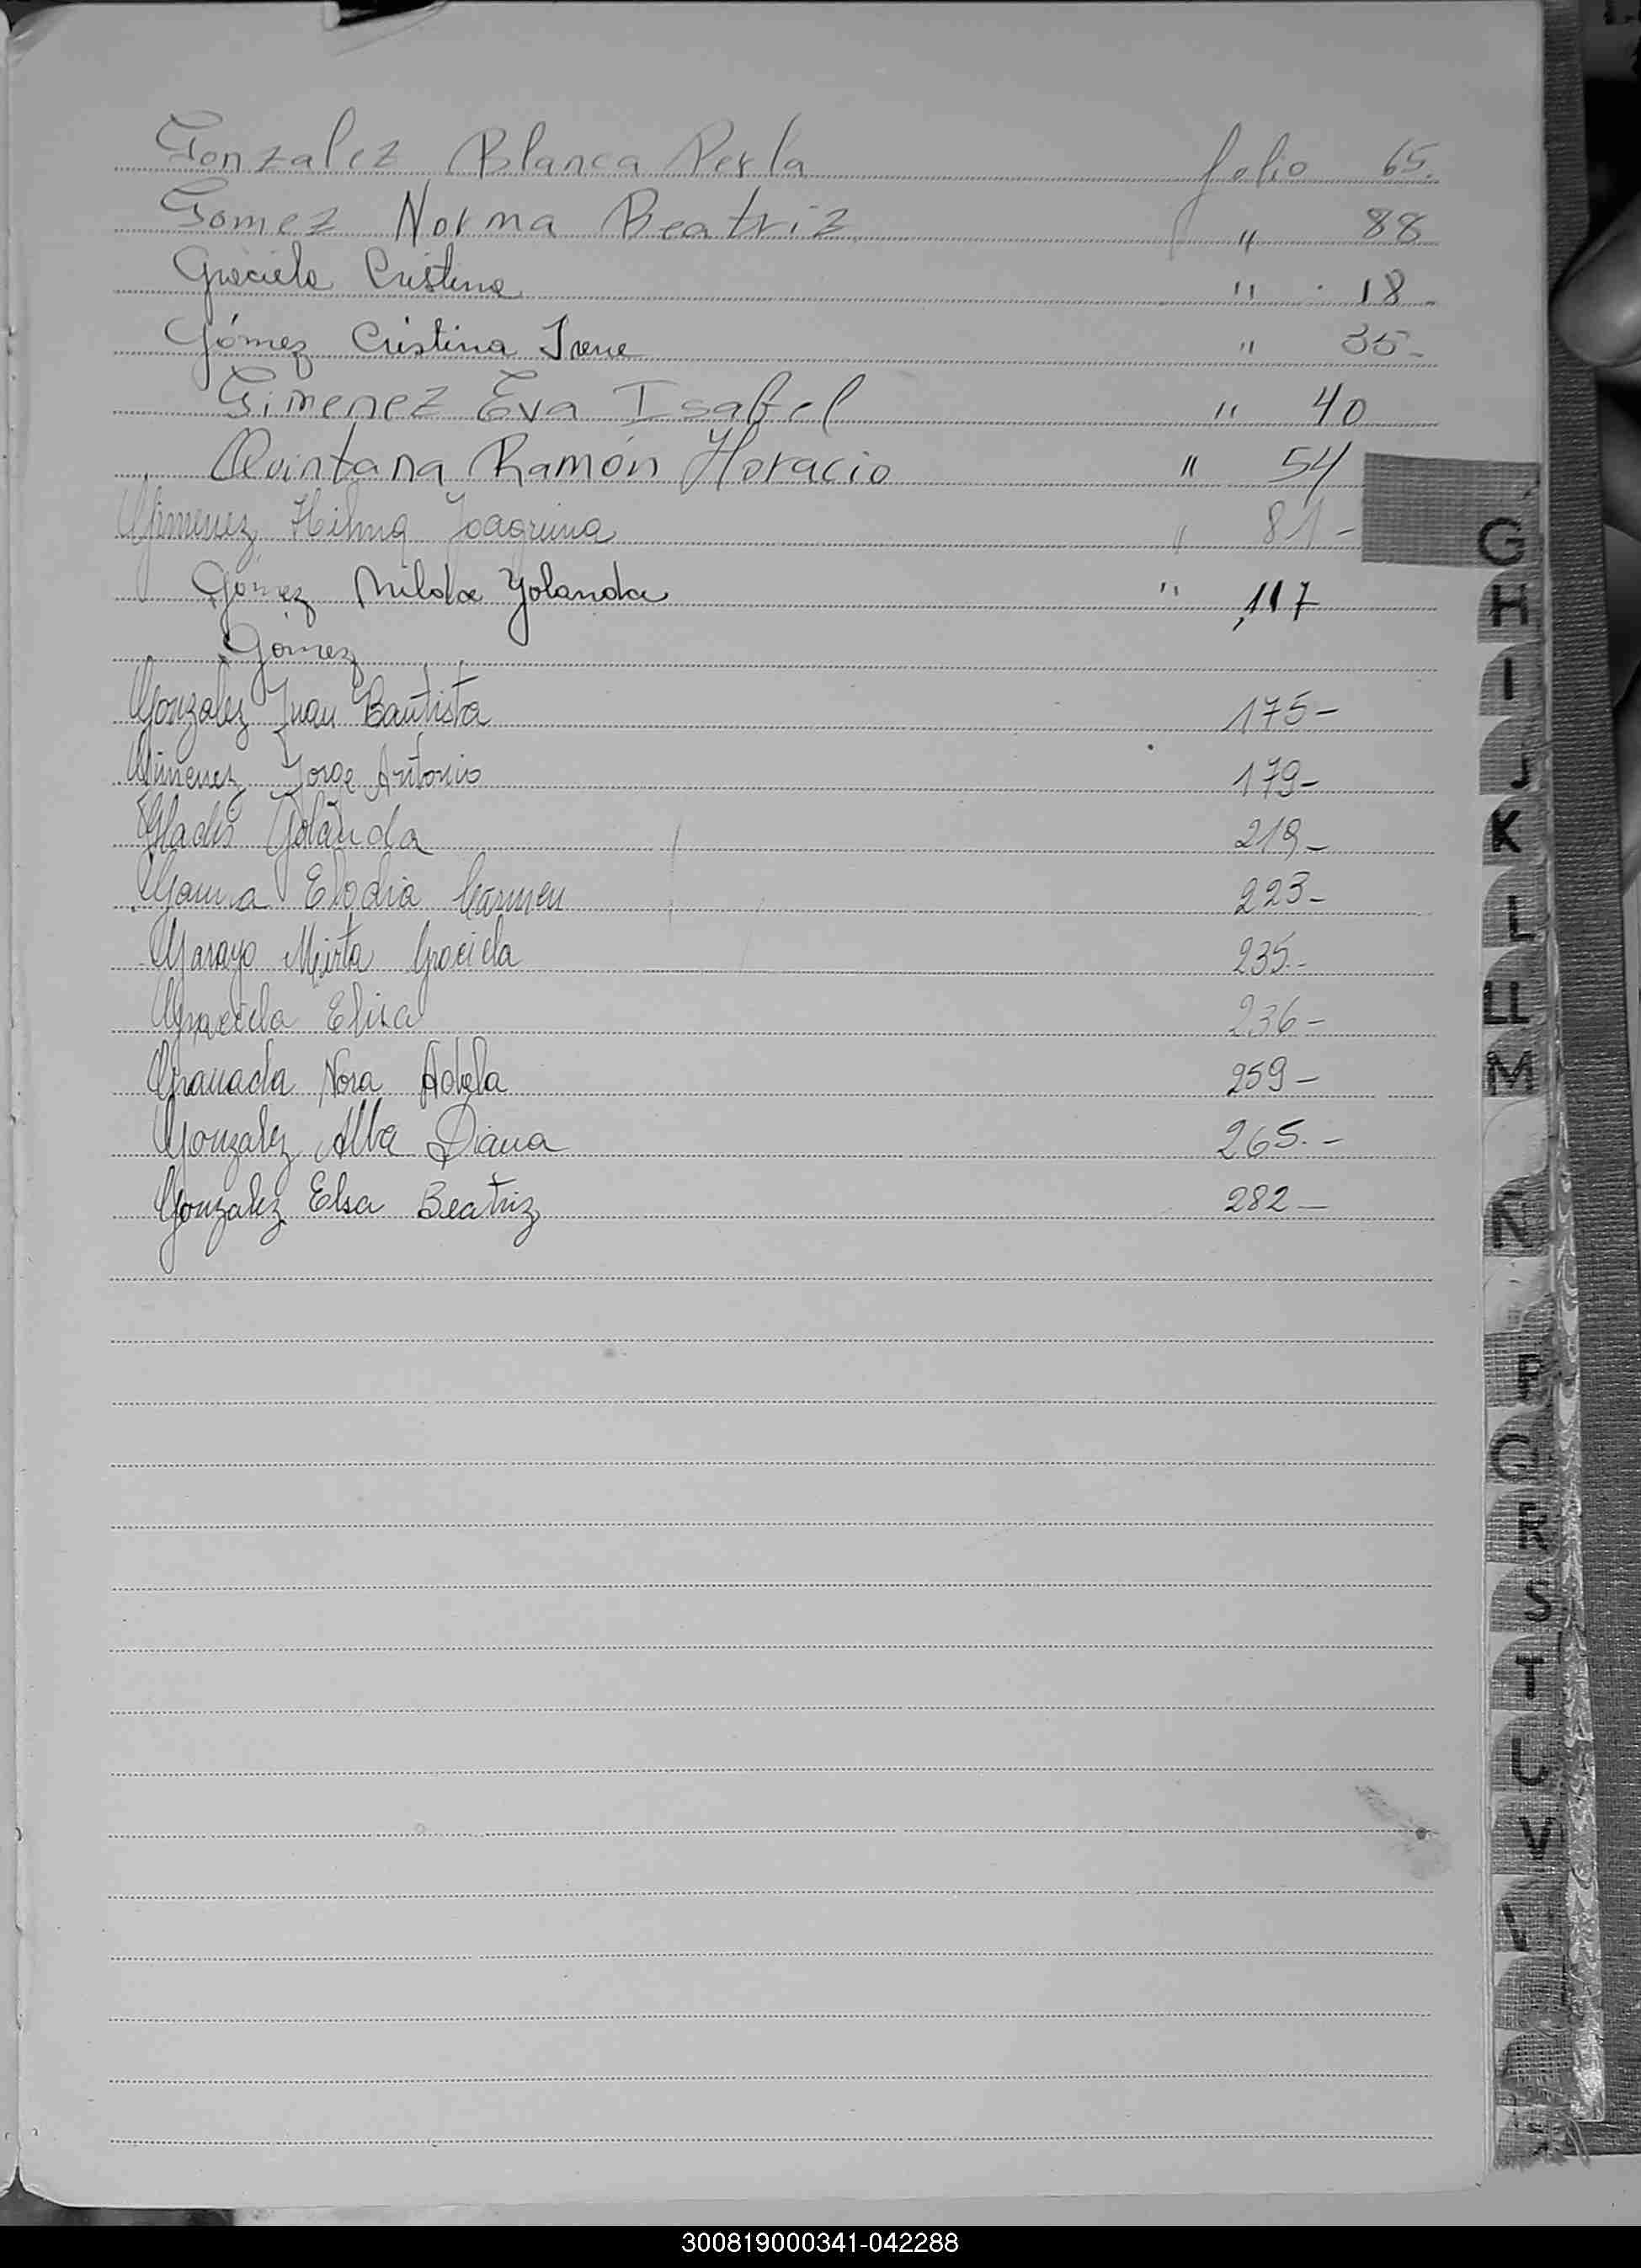 Gonzalez Blanca Perla folio 65.
Gomez Norma Beatriz " 88
Graciela Cristina " 18
Gómez Cristina Irene " 35-
Gimenez Eva Isabel " 40
Quintana Ramón Horacio " 54
Gimenez Hilma Joaquina " 81-
Gómez Nilda Yolanda " 117
Gómez
Gonzalez Juan Bautista 175-
Gimenez Jorge Antonio 179-
Gladis Yolanda 219-
Elodia Carmen 223-
Garayo Mirta Graciela 235-
Graciela Elisa 236-
Granada Nora Adela 259-
Gonzalez Alba Diana 265.-
Gonzalez Elsa Beatriz 282-
G
H
I
J
K
L
LL
M
N
P
Q
R
S
T
U
V
300819000341-042288